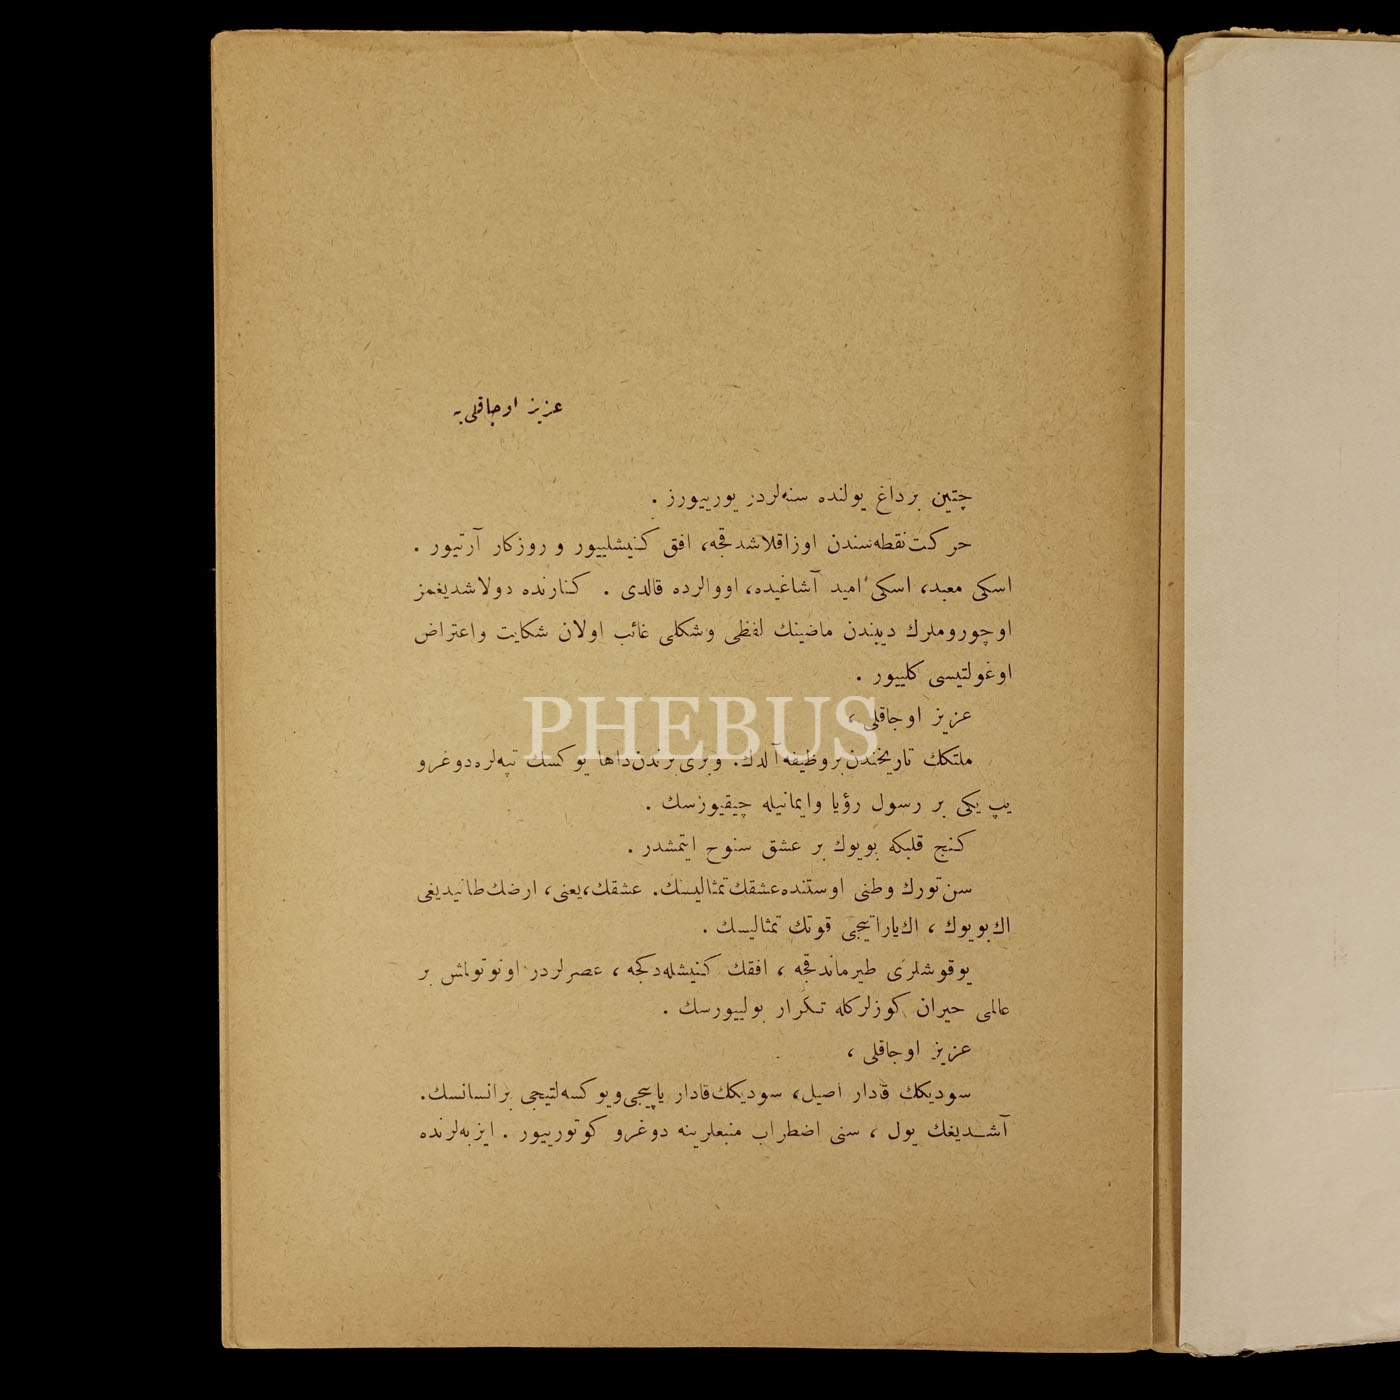 عزیز اوجاقلی یه
چتین بر داغ یولنده سنه‌لردر یورییورز .
حرکت نقطه‌سندن اوزاقلاشدقجه، افق کنیشلییور و روزکار آرتیور .
اسکی معبد، اسکی امید آشاغیده، اووالرده قالدی . کنارنده دولاشدیغمز
اوچوروملرك دیبندن ماضینك لفظی وشکلی غائب اولان شکایت واعتراض
اوغولتیسی کلییور .
عزیز اوجاقلی ،
ملتکك تاریخندن بر وظیفه آلدك. وبری برندن داها یوکسك تپه‌لره دوغرو
یپ یکی بر رسول رؤیا وایمانیله چیقیورسك .
کنج قلبکه بویوك بر عشق سنوح ایتمشدر .
سن تورك وطنی اوستنده عشقك تمثالیسك. عشقك، یعنی، ارضك طانیدیغی
اك بویوك ، اك یاراتیجی قوتك تمثالیسك .
یوقوشلری طیرماندقجه ، افقك کنیشله‌دکجه ، عصرلردر اونوتولمش بر
عالمی حیران کوزلرکله تکرار بولییورسك .
عزیز اوجاقلی ،
سودیکك قادار اصیل، سودیکك قادار یاپیجی ویوکسه‌لتیجی بر انسانسك.
آشدیغك یول ، سنی اضطراب منبعلرینه دوغرو کوتورییور . ایزبه‌لرنده
PHEBUS